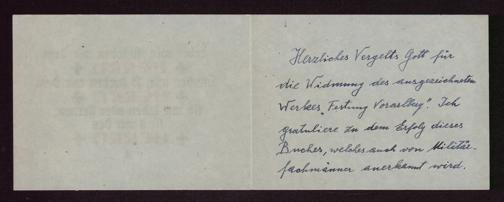 Herzliches Vergelts Gott für
die Widmung des ausgezeichneten
Werkes „Festung Vorarlberg". Ich
gratuliere zu dem Erfolg dieses
Buches, welches auch von Militär-
fachmänner anerkannt wird.